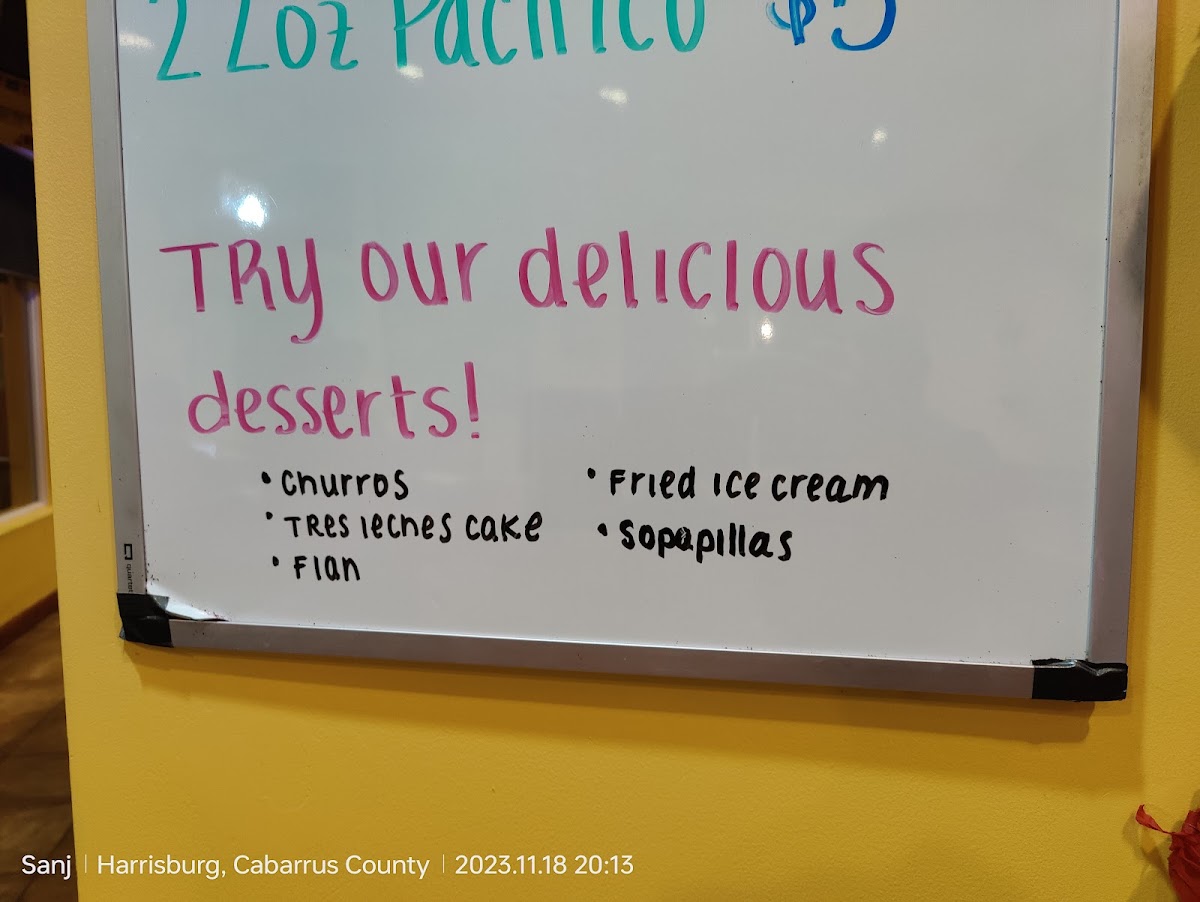 22oz Pacifico $5
TRy our delicious
desserts!
• Churros
• TRes leches cake
• Flan
• Fried ice cream
• Sopapillas
quartet
Sanj | Harrisburg, Cabarrus County | 2023.11.18 20:13